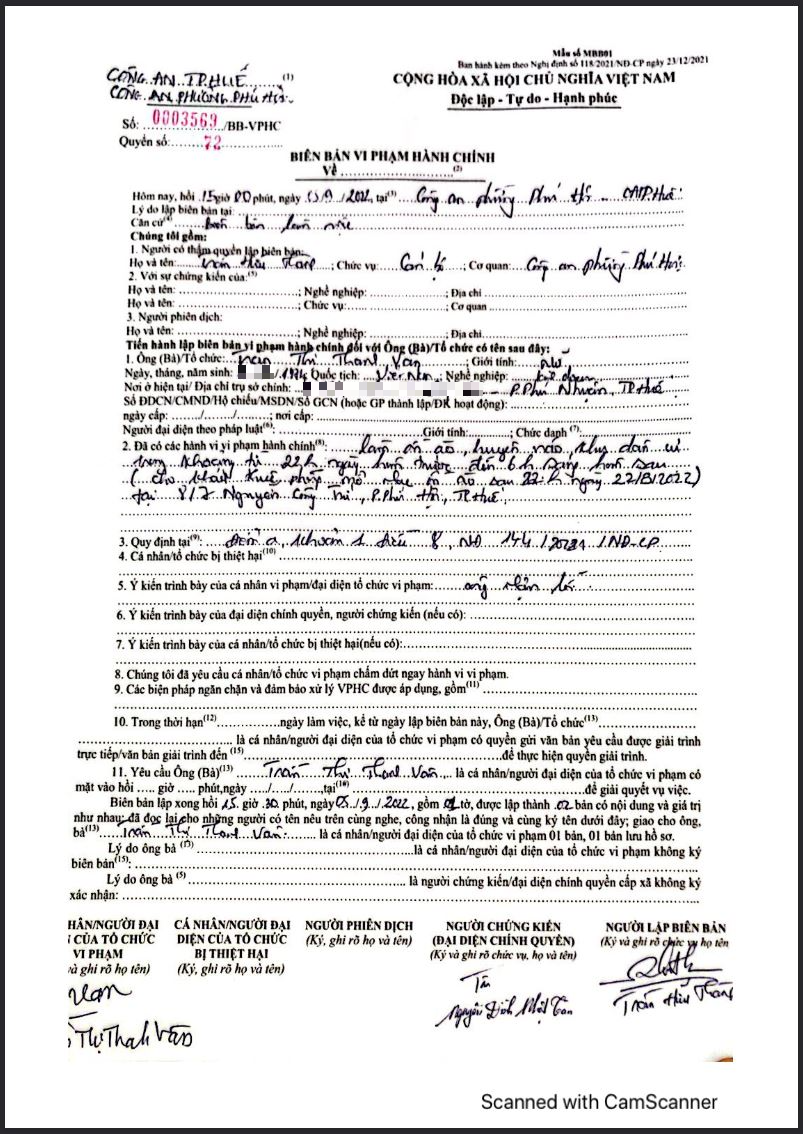 Mẫu số MBB01
Ban hành kèm theo Nghị định số 118/2021/NĐ-CP ngày 23/12/2021
CÔNG AN TP HUẾ (1)
CÔNG AN PHƯỜNG PHÚ HỘI
CỘNG HÒA XÃ HỘI CHỦ NGHĨA VIỆT NAM
Độc lập - Tự do - Hạnh phúc
Số: 0003569 /BB-VPHC
Quyển số: 72
BIÊN BẢN VI PHẠM HÀNH CHÍNH
Về ........ (2)
Hôm nay, hồi 15 giờ 00 phút, ngày /9/2022, tại (3) Công an phường Phú Hội - CATP Huế
Lý do lập biên bản tại:
Căn cứ (4) biên bản làm việc
Chúng tôi gồm:
1. Người có thẩm quyền lập biên bản:
Họ và tên: Trần Hữu ; Chức vụ: Cán bộ ; Cơ quan: Công an phường Phú Hội
2. Với sự chứng kiến của: (5)
Họ và tên: ; Nghề nghiệp: ; Địa chỉ
Họ và tên: ; Chức vụ: ; Cơ quan
3. Người phiên dịch:
Họ và tên: ; Nghề nghiệp: ; Địa chỉ
Tiến hành lập biên bản vi phạm hành chính đối với Ông (Bà)/Tổ chức có tên sau đây:
1. Ông (Bà)/Tổ chức: Trần Thị Thanh Vân ; Giới tính: Nữ
Ngày, tháng, năm sinh: /1974 Quốc tịch: Việt Nam ; Nghề nghiệp:
Nơi ở hiện tại/ Địa chỉ trụ sở chính: - P. Phú Nhuận, TP Huế
Số ĐDCN/CMND/Hộ chiếu/MSDN/Số GCN (hoặc GP thành lập/ĐK hoạt động):
ngày cấp: ....../....../......; nơi cấp:
Người đại diện theo pháp luật (6): Giới tính: ; Chức danh (7):
2. Đã có các hành vi vi phạm hành chính (8): làm ồn ào, huyên náo, khu dân cư
trong khoảng từ 22h ngày hôm trước đến 6h sáng hôm sau
(cho khách mở nhạc ồn ào sau 22h ngày 22/8/2022)
tại 8/7 Nguyễn Công Trứ, P. Phú Hội, TP Huế,
3. Quy định tại (9): Điểm a, khoản 1 điều 8, NĐ 144/2021/NĐ-CP
4. Cá nhân/tổ chức bị thiệt hại (10)
5. Ý kiến trình bày của cá nhân vi phạm/đại diện tổ chức vi phạm:
6. Ý kiến trình bày của đại diện chính quyền, người chứng kiến (nếu có):
7. Ý kiến trình bày của cá nhân/tổ chức bị thiệt hại(nếu có):
8. Chúng tôi đã yêu cầu cá nhân/tổ chức vi phạm chấm dứt ngay hành vi vi phạm.
9. Các biện pháp ngăn chặn và đảm bảo xử lý VPHC được áp dụng, gồm (11)
10. Trong thời hạn (12) ngày làm việc, kể từ ngày lập biên bản này, Ông (Bà)/Tổ chức (13)
là cá nhân/người đại diện của tổ chức vi phạm có quyền gửi văn bản yêu cầu được giải trình
trực tiếp/văn bản giải trình đến (15) để thực hiện quyền giải trình.
11. Yêu cầu Ông (Bà) (13) Trần Thị Thanh Vân là cá nhân/người đại diện của tổ chức vi phạm có
mặt vào hồi ..... giờ ..... phút,ngày ..../..../....,tại (16) để giải quyết vụ việc.
Biên bản lập xong hồi 15 giờ 30 phút, ngày 05/9/2022, gồm 01 tờ, được lập thành 02 bản có nội dung và giá trị
như nhau; đã đọc lại cho những người có tên nêu trên cùng nghe, công nhận là đúng và cùng ký tên dưới đây; giao cho ông,
bà (13) Trần Thị Thanh Vân là cá nhân/người đại diện của tổ chức vi phạm 01 bản, 01 bản lưu hồ sơ.
Lý do ông bà là cá nhân/người đại diện của tổ chức vi phạm không ký
biên bản (15):
Lý do ông bà (5) là người chứng kiến/đại diện chính quyền cấp xã không ký
xác nhận:
HÂN/NGƯỜI ĐẠI CÁ NHÂN/NGƯỜI ĐẠI NGƯỜI PHIÊN DỊCH NGƯỜI CHỨNG KIẾN NGƯỜI LẬP BIÊN BẢN
CỦA TỔ CHỨC DIỆN CỦA TỔ CHỨC (Ký, ghi rõ họ và tên) (ĐẠI DIỆN CHÍNH QUYỀN) (Ký và ghi rõ chức vụ, họ tên
VI PHẠM BỊ THIỆT HẠI (Ký và ghi rõ chức vụ, họ và tên)
và ghi rõ họ tên) (Ký, ghi rõ họ và tên)
Van
Thị Thanh Vân
Nguyễn Đình Nhật Tân
Trần Hữu
Scanned with CamScanner